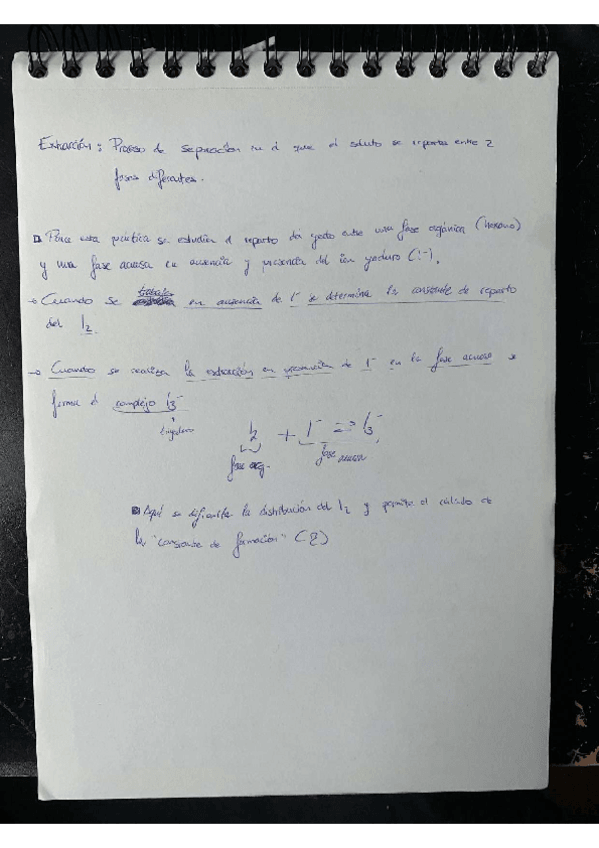 Extracción: Proceso de separación en el que el soluto se reparta entre 2
fases diferentes.
Para esta práctica se estudia el reparto del yodo entre una fase orgánica (hexano)
y una fase acuosa en ausencia y presencia del ion yoduro (I-).
→ Cuando se trabaja en ausencia de I- se determina la constante de reparto
del I2
→ Cuando se realiza la extracción en presencia de I- en la fase acuosa se
forma el complejo I3-
triyoduro
I2 + I- ⇌ I3-
fase org. fase acuosa
Aquí se dificulta la distribución del I2 y permite el cálculo de
la "constante de formación" (?)